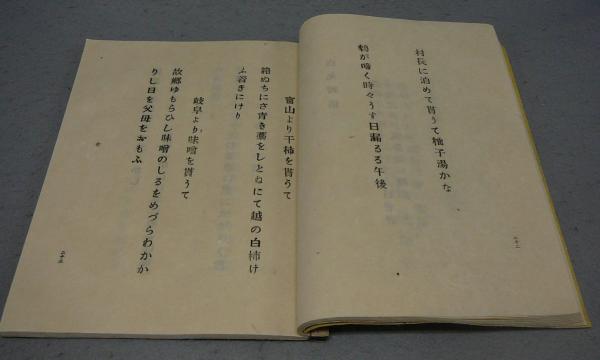 村長に泊めて貰うて柚子湯かな
鶴が啼く時々うす日漏るる午後
二十二
富山より干柿を貰うて
箱ぬちにさ青き藁をしとねにて越の白柿け
ふ着きにけり
岐阜より味噌を貰うて
故郷ゆもらひし味噌のしるをめづらわかか
りし日を父母をおもふ
二十三